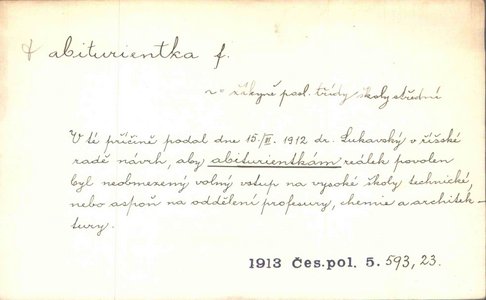 † abiturientka f.
žákyně posl. třídy školy střední
V té příčině podal dne 15./III. 1912 dr. Lukavský v říšské
radě návrh, aby abiturientkám reálek povolen
byl neobmezený volný vstup na vysoké školy technické,
nebo aspoň na oddělení profesury, chemie a architek-
tury.
1913 Čes.pol. 5. 593, 23.